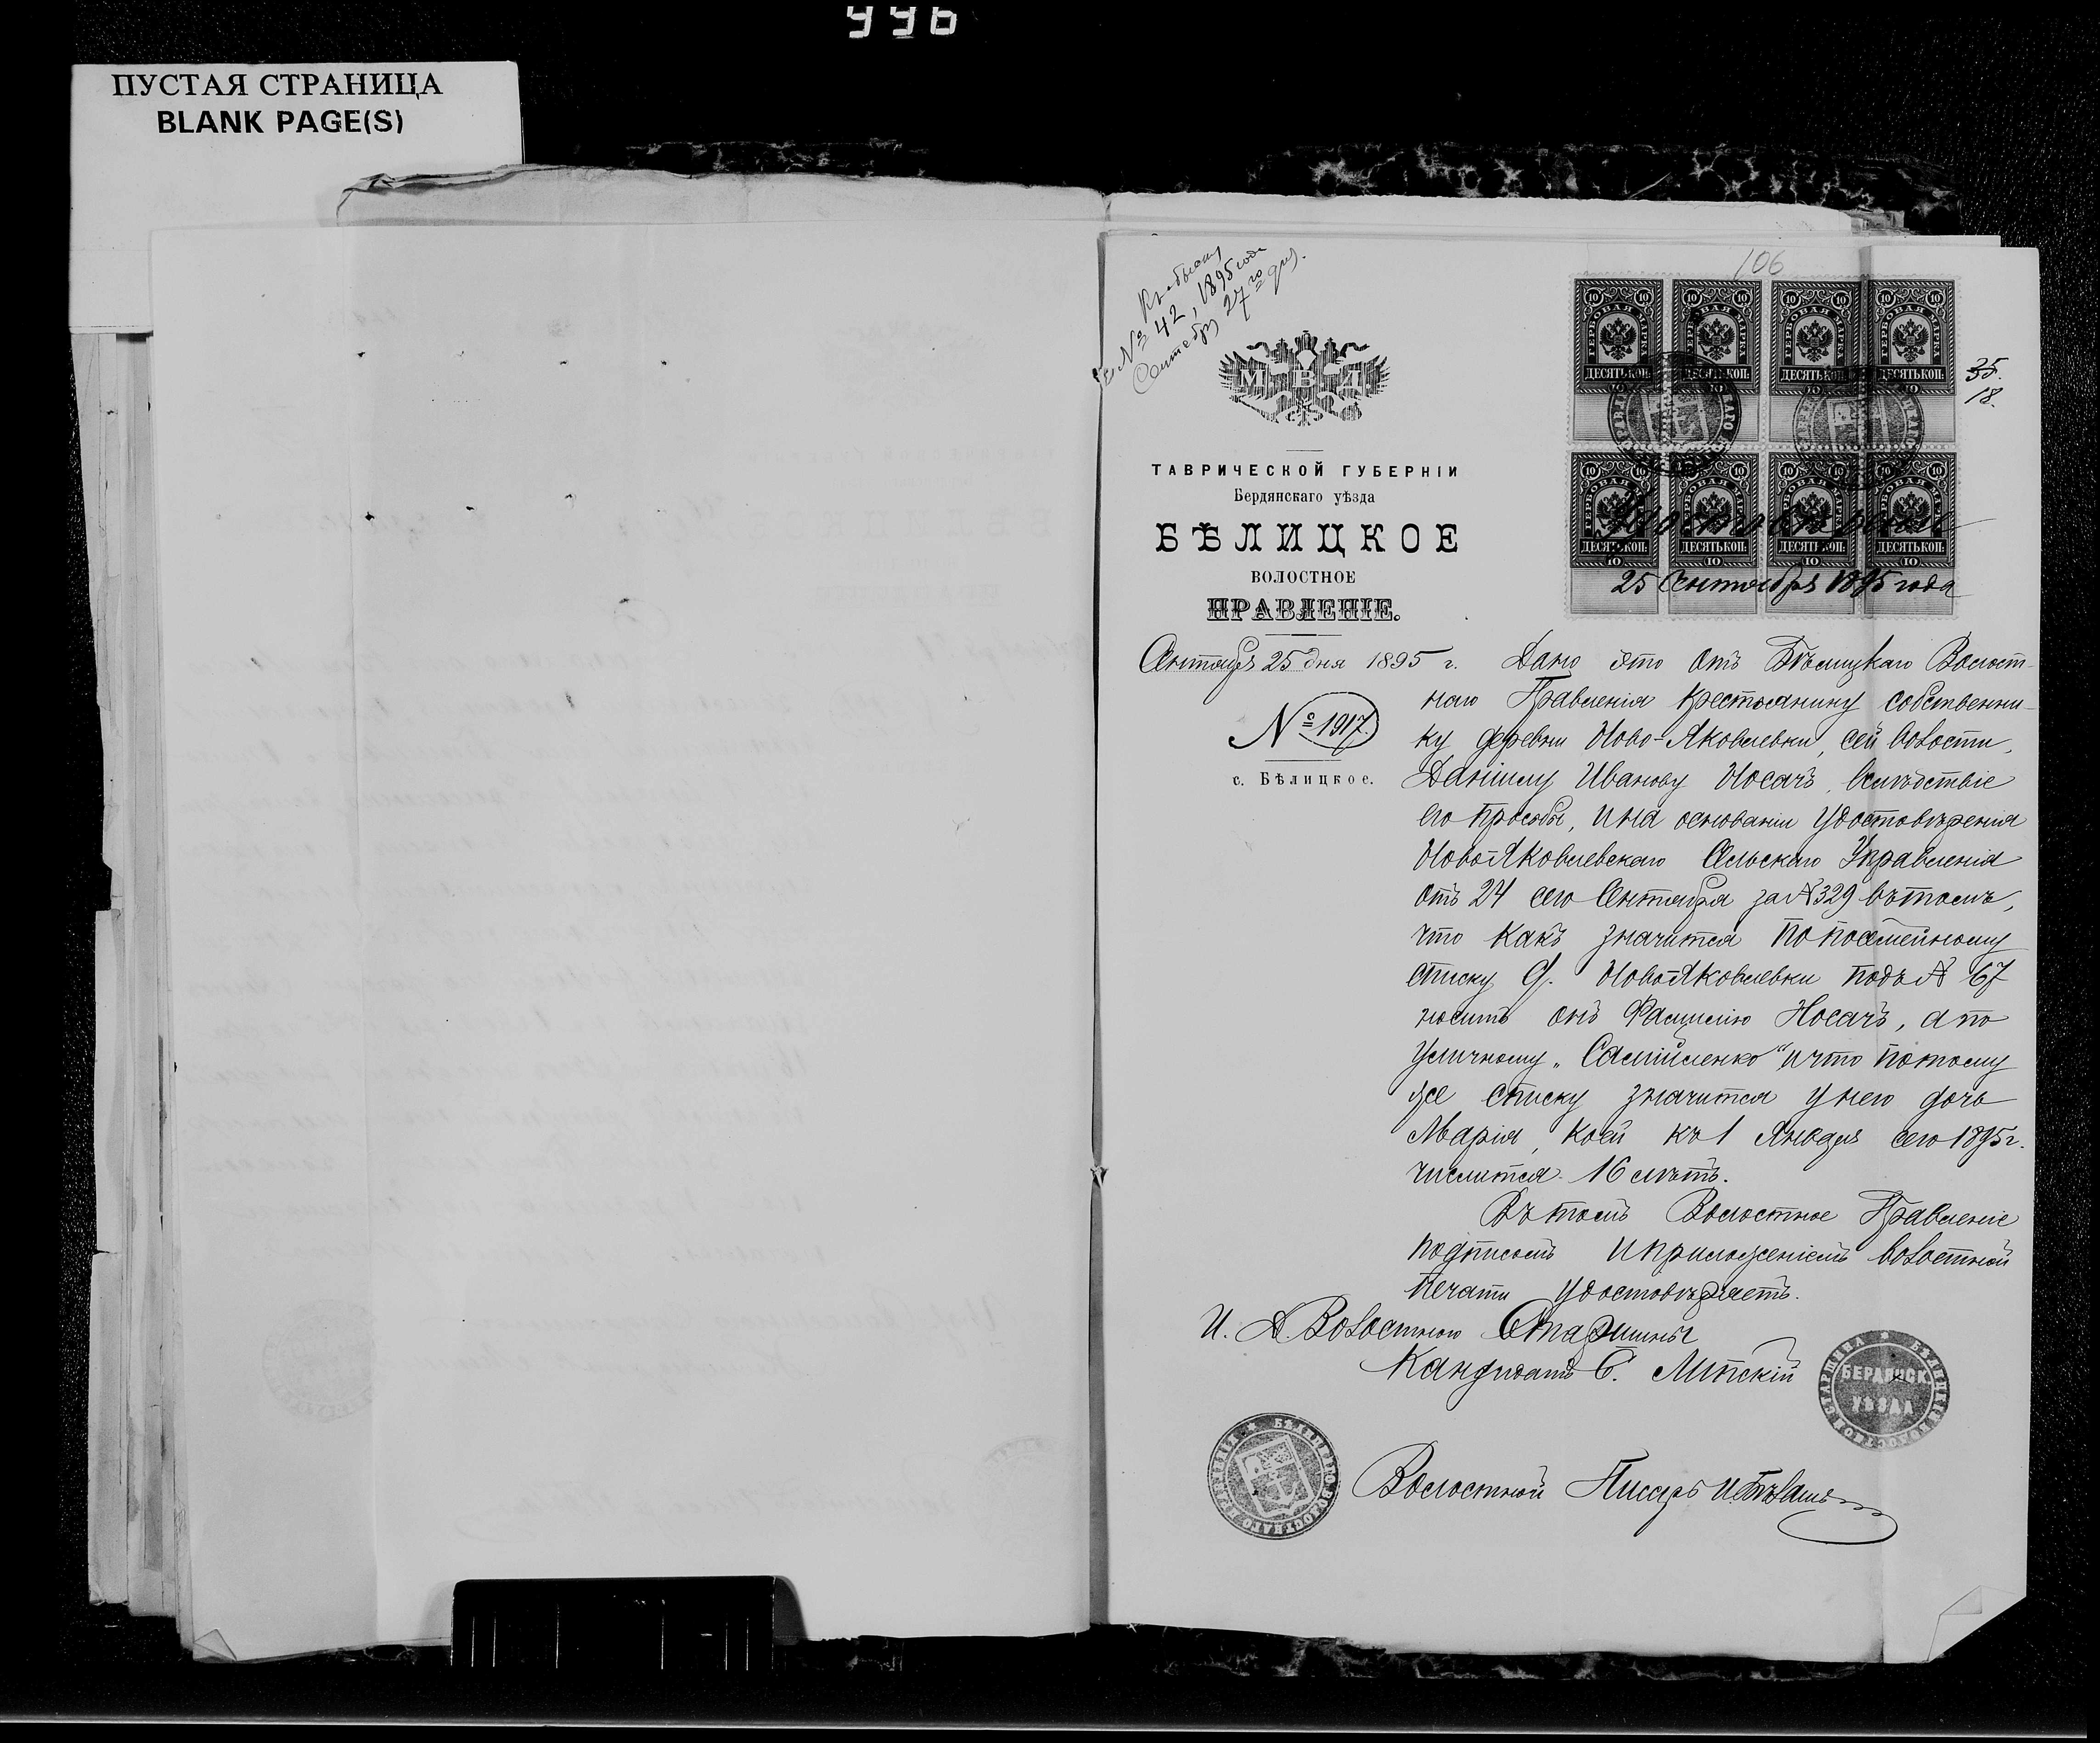 996
ПУСТАЯ СТРАНИЦА
BLANK PAGE(S)
106
Къ обыску
№ 42, 1895 года
Сентября 27го дня.
М В Д
ТАВРИЧЕСКОЙ ГУБЕРНІИ
Бердянскаго уѣзда
БѢЛИЦКОЕ
ВОЛОСТНОЕ
ПРАВЛЕНІЕ.
ГЕРБОВАЯ МАРКА
ДЕСЯТЬ КОП:
10
35.
18.
25 Сентября 1895 года
Сентября 25 дня 1895 г.
№ 1917.
с. Бѣлицкое.
Дано это отъ Бѣлицкаго Волост-
наго Правленія крестьянину собственни-
ку деревни Ново-Яковлевки, сей волости,
Даніилу Иванову Носачъ, вслѣдствіе
его просьбы, и на основаніи удостовѣренія
Ново-Яковлевскаго Сельскаго Управленія
отъ 24 сего Сентября за № 329 въ томъ,
что какъ значится по посемейному
списку д. Ново-Яковлевки подъ № 67
носитъ онъ фамилію Носачъ, а по
уличному „Самійленко" и что по тому
же списку значится у него дочь
Марія, коей къ 1 Января сего 1895 г.
числится 16 лѣтъ.
Въ томъ Волостное Правленіе
подписомъ и приложеніемъ волостной
печати удостовѣряетъ.
И. Д. Волостного Старшины
Кандидатъ С. Липскій
БѢЛИЦКІЙ ВОЛОСТНОЙ СТАРШИНА
БЕРДЯНСК
УѢЗДА
БѢЛИЦКАГО ВОЛОСТНАГО ПРАВЛЕНІЯ
Волостной Писарь